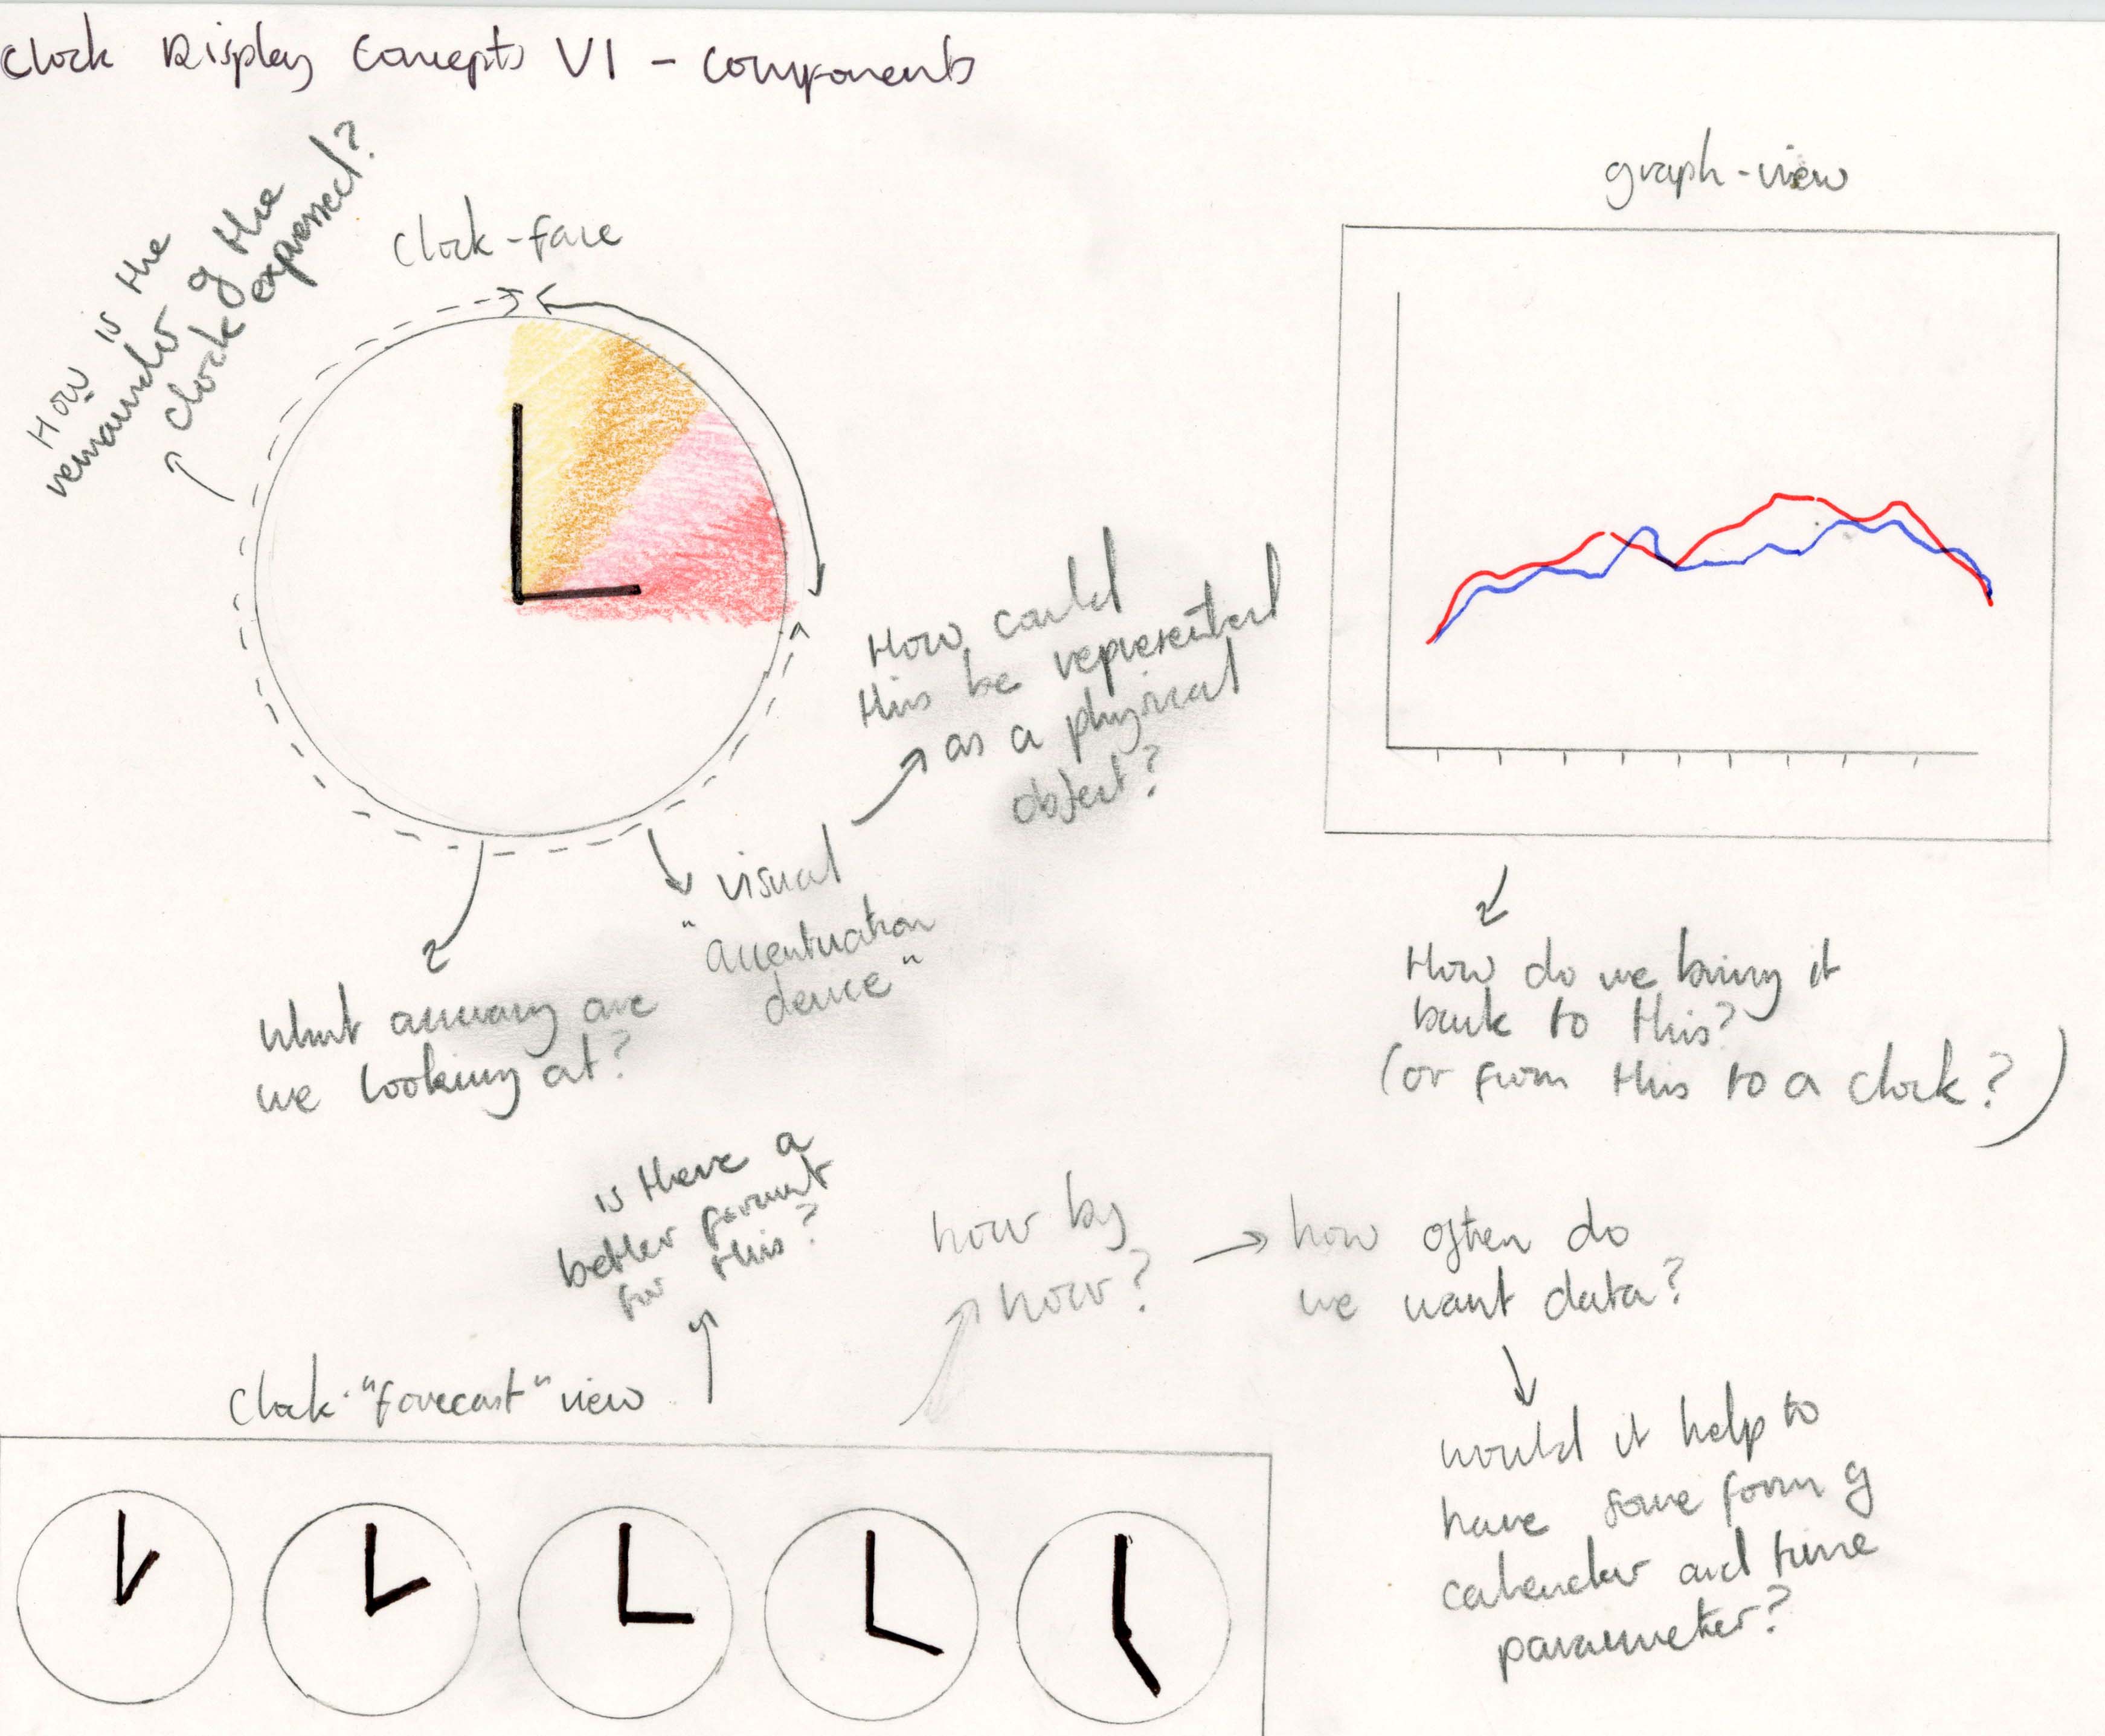 Clock Display Concepts VI - Components
How is the
remainder of the
clock expressed?
clock-face
graph-view
How could
this be represented
as a physical
object?
visual
"accentuation
device"
What accuracy are
we looking at?
How do we bring it
back to this?
(or from this to a clock?)
is there a
better format
for this?
hour by
hour?
how often do
we want data?
would it help to
have some form of
calendar and time
parameter?
Clock "forecast" view